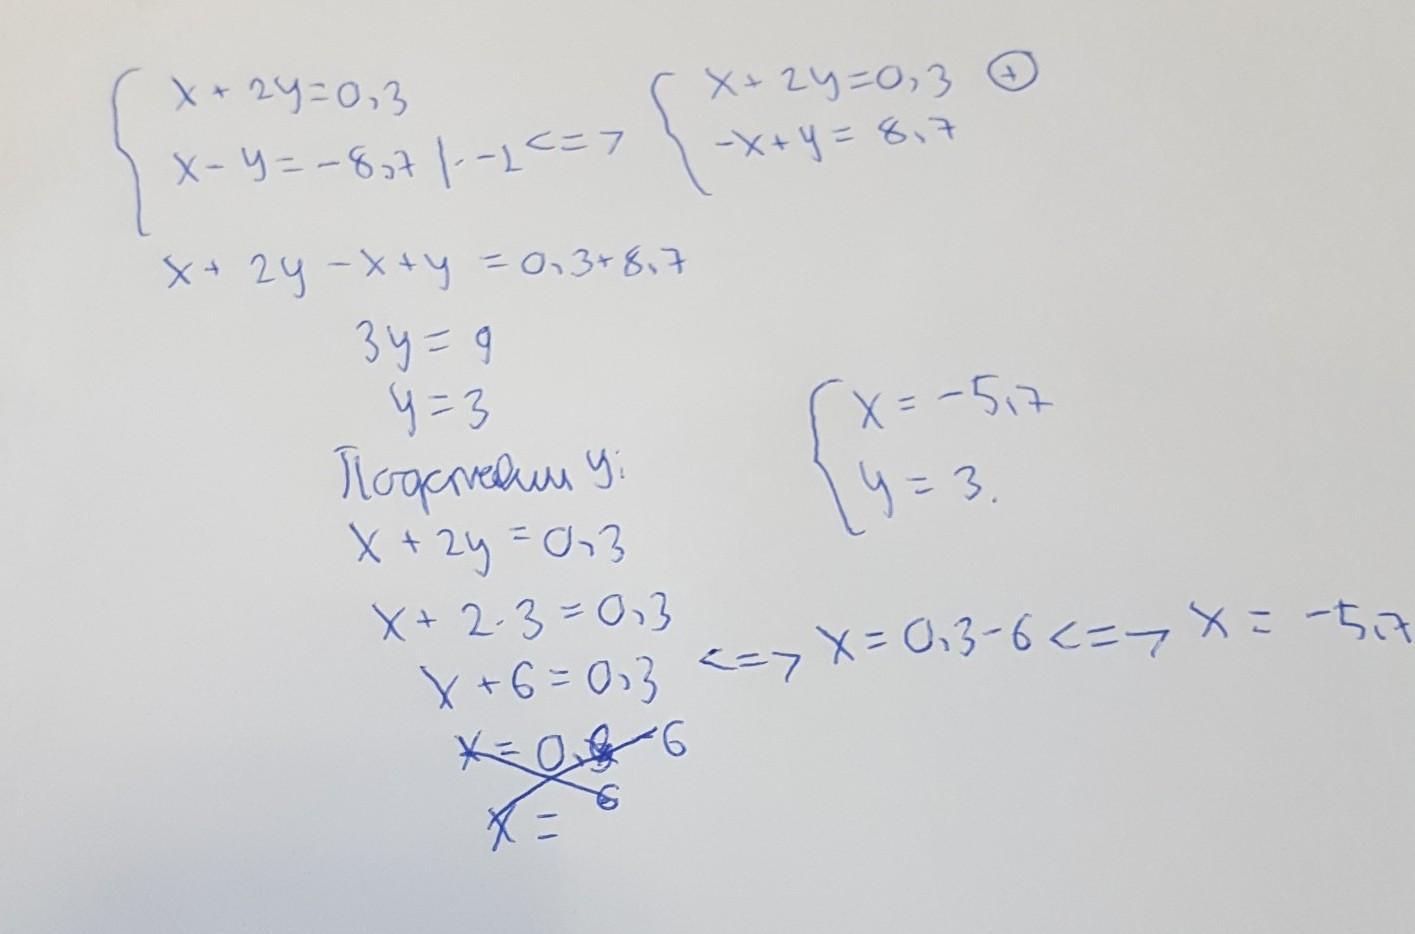 x + 2y = 0,3
x - y = -8,7 |· -1 <=>
x + 2y = 0,3 ⊕
-x + y = 8,7
x + 2y - x + y = 0,3 + 8,7
3y = 9
y = 3
Подставим y:
x + 2y = 0,3
x + 2·3 = 0,3
x + 6 = 0,3 <=> x = 0,3 - 6 <=> x = -5,7
x =
x = -5,7
y = 3.